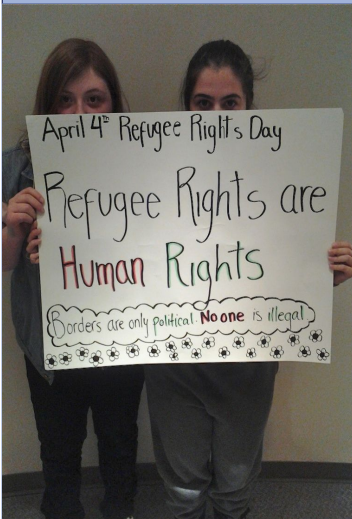 April 4th Refugee Rights Day
Refugee Rights are
Human Rights
Borders are only political. No one is illegal.